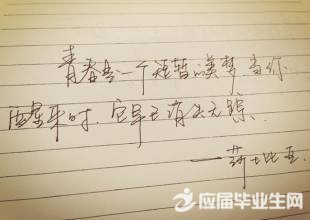 青春是一个短暂的美梦,当你
醒来时,它早已消失无踪.
——莎士比亚.
应届毕业生网